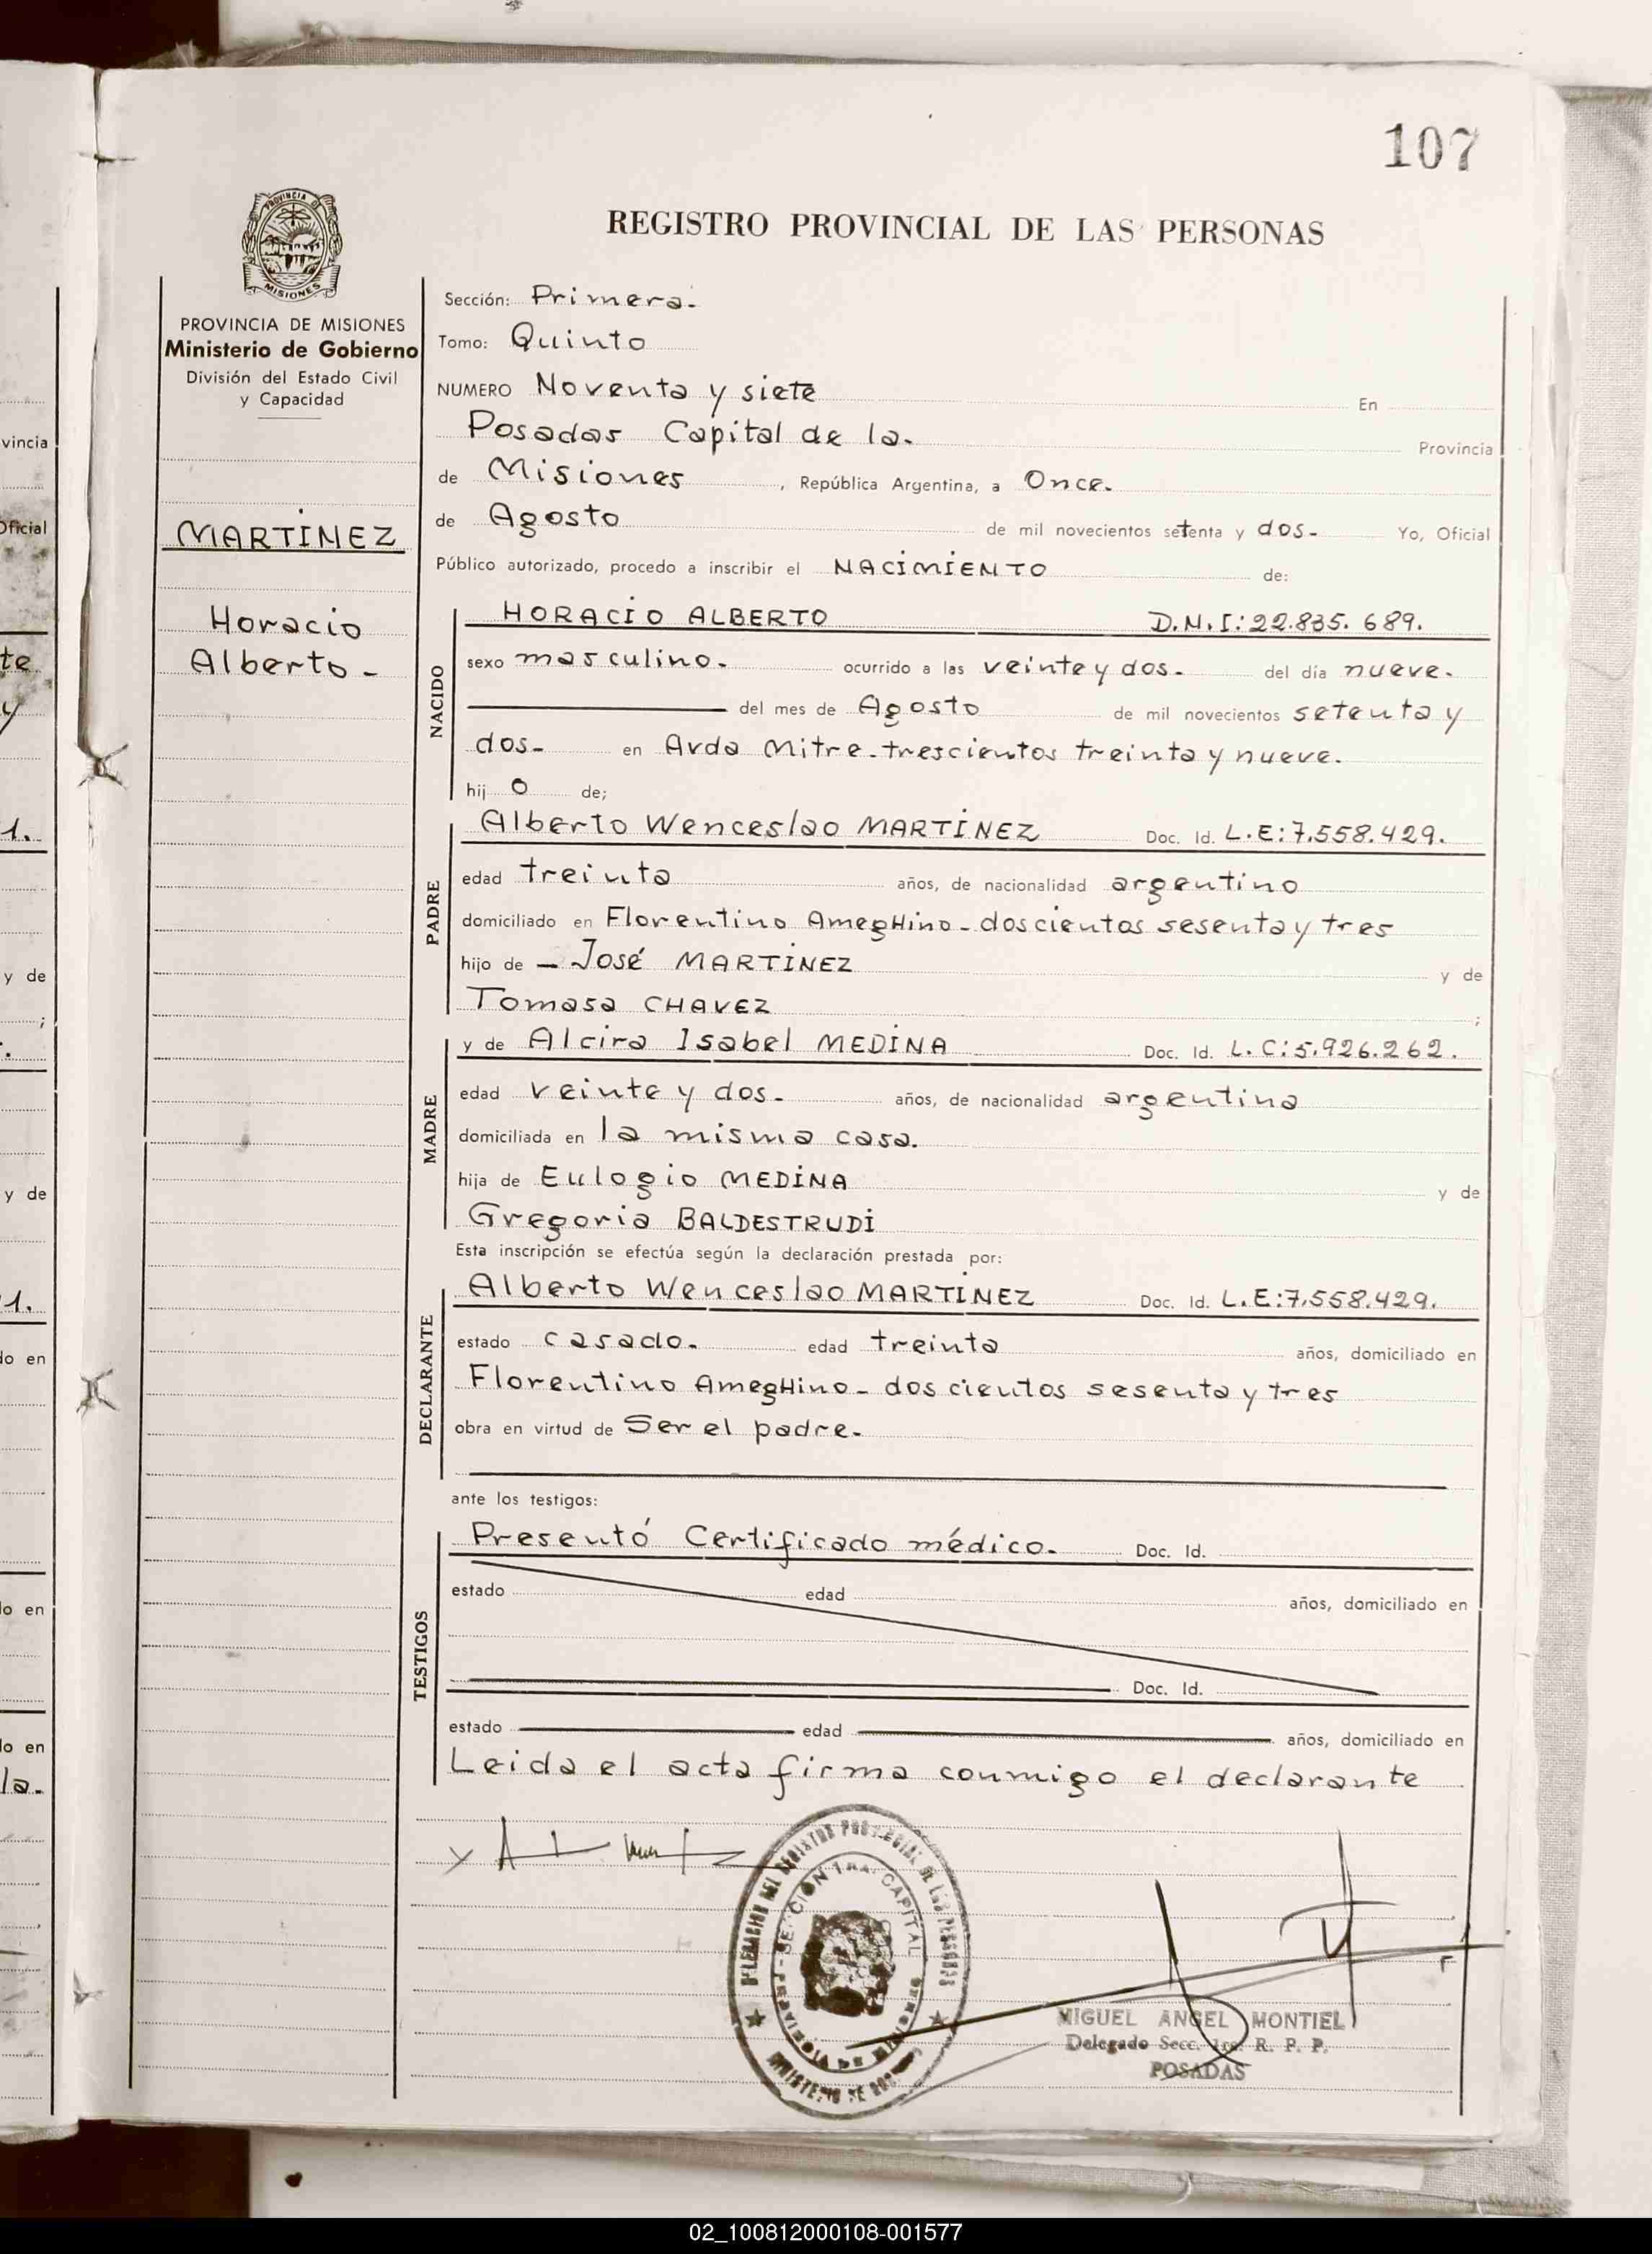 107
REGISTRO PROVINCIAL DE LAS PERSONAS
PROVINCIA DE MISIONES
Ministerio de Gobierno
División del Estado Civil
y Capacidad
MARTINEZ
Horacio
Alberto -
Sección: Primera.
Tomo: Quinto
NUMERO Noventa y siete En
Posadas Capital de la. Provincia
de Misiones, República Argentina, a Once.
de Agosto de mil novecientos setenta y dos- Yo, Oficial
Público autorizado, procedo a inscribir el NACIMIENTO de:
NACIDO
HORACIO ALBERTO D.N.I: 22.835.689.
sexo masculino. ocurrido a las veinte y dos. del día nueve.
del mes de Agosto de mil novecientos setenta y
dos- en Avda Mitre - trescientos treinta y nueve.
hij o de;
PADRE
Alberto Wenceslao MARTINEZ Doc. Id. L.E: 7.558.429.
edad treinta años, de nacionalidad argentino
domiciliado en Florentino AmegHino - doscientos sesenta y tres
hijo de - José MARTINEZ y de
Tomasa CHAVEZ ;
MADRE
y de Alcira Isabel MEDINA Doc. Id. L.C: 5.926.262.
edad veinte y dos- años, de nacionalidad argentina
domiciliada en la misma casa.
hija de Eulogio MEDINA y de
Gregoria BALDESTRUDI
Esta inscripción se efectúa según la declaración prestada por:
DECLARANTE
Alberto Wenceslao MARTINEZ Doc. Id. L.E: 7.558.429.
estado casado. edad treinta años, domiciliado en
Florentino AmegHino - doscientos sesenta y tres
obra en virtud de Ser el padre.
ante los testigos:
TESTIGOS
Presentó Certificado médico. Doc. Id.
estado edad años, domiciliado en
Doc. Id.
estado edad años, domiciliado en
Leida el acta firma conmigo el declarante
MIGUEL ANGEL MONTIEL
Delegado Secc. 1ra. R. P. P.
POSADAS
02_100812000108-001577